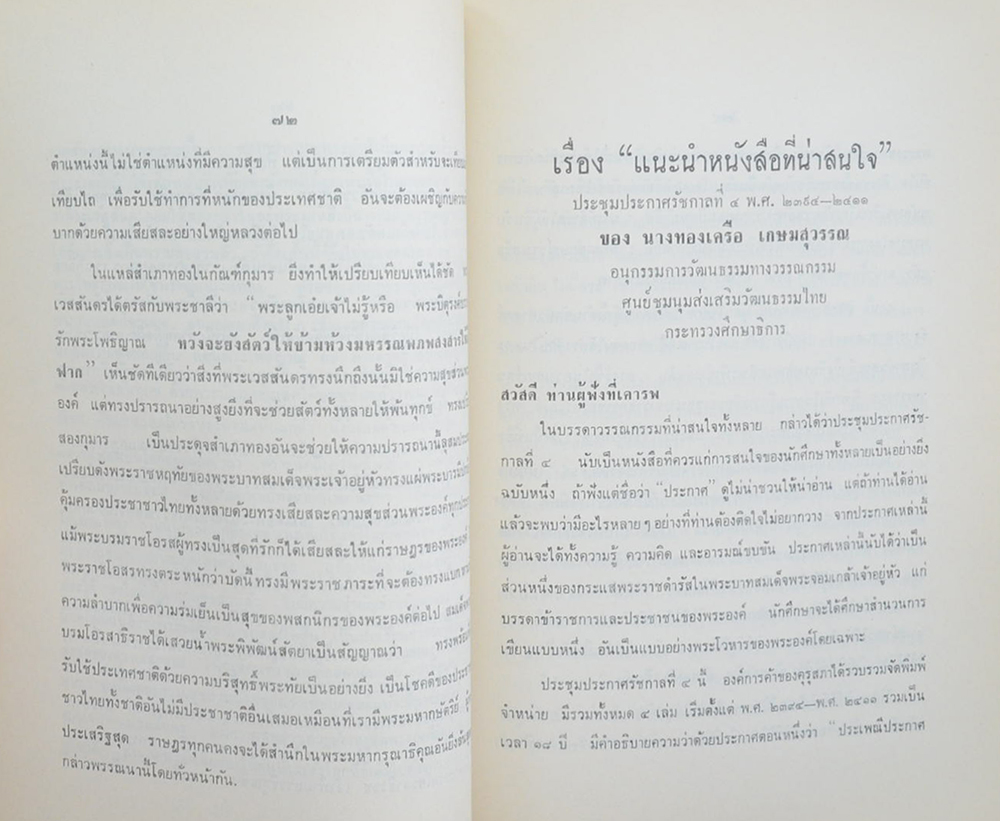 ๗๒
ตำแหน่งนี้ไม่ใช่ตำแหน่งที่มีความสุข แต่เป็นการเตรียมตัวสำหรับจะ
เทียบไถ เพื่อรับใช้ทำการที่หนักของประเทศชาติ อันจะต้องเผชิญกับความ
บากด้วยความเสียสละอย่างใหญ่หลวงต่อไป
ในแหล่สำเภาทองในกัณฑ์กุมาร ยิ่งทำให้เปรียบเทียบเห็นได้ชัด
เวสสันดรได้ตรัสกับพระชาลีว่า “พระลูกเอ๋ยเจ้าไม่รู้หรือ พระบิตุรงค์
รักพระโพธิญาณ หวังจะยังสัตว์ให้ข้ามห้วงมหรรณพภพสงสารให้
ฟาก” เห็นชัดทีเดียวว่าสิ่งที่พระเวสสันดรทรงนึกถึงนั้นมิใช่ความสุขส่วน
องค์ แต่ทรงปรารถนาอย่างสูงยิ่งที่จะช่วยสัตว์ทั้งหลายให้พ้นทุกข์
สองกุมาร เป็นประดุจสำเภาทองอันจะช่วยให้ความปรารถนานี้ลุสม
เปรียบดังพระราชหฤทัยของพระบาทสมเด็จพระเจ้าอยู่หัวทรงแผ่พระบารมี
คุ้มครองประชาชาวไทยทั้งหลายด้วยทรงเสียสละความสุขส่วนพระองค์ทุก
แม้พระบรมราชโอรสผู้ทรงเป็นสุดที่รักก็ได้เสียสละให้แก่ราษฎรของพระองค์
พระราชโอสรทรงตระหนักว่าบัดนี้ทรงมีพระราชภาระที่จะต้องทรงแบก
ความลำบากเพื่อความร่มเย็นเป็นสุขของพสกนิกรของพระองค์ต่อไป สมเด็จ
บรมโอรสาธิราชได้เสวยน้ำพระพิพัฒน์สัตยาเป็นสัญญาณว่า ทรงพร้อม
รับใช้ประเทศชาติด้วยความบริสุทธิ์พระทัยเป็นอย่างยิ่ง เป็นโชคดีของ
ชาวไทยทั้งชาติอันไม่มีประชาชาติอื่นเสมอเหมือนที่เรามีพระมหากษัตริย์
ประเสริฐสุด ราษฎรทุกคนคงจะได้สำนึกในพระมหากรุณาธิคุณอันยิ่ง
กล่าวพรรณนานี้โดยทั่วหน้ากัน.
เรื่อง “แนะนำหนังสือที่น่าสนใจ”
ประชุมประกาศรัชกาลที่ ๔ พ.ศ. ๒๓๙๔—๒๔๑๑
ของ นางทองเครือ เกษมสุวรรณ
อนุกรรมการวัฒนธรรมทางวรรณกรรม
ศูนย์ชุมนุมส่งเสริมวัฒนธรรมไทย
กระทรวงศึกษาธิการ
สวัสดี ท่านผู้ฟังที่เคารพ
ในบรรดาวรรณกรรมที่น่าสนใจทั้งหลาย กล่าวได้ว่าประชุมประกาศรัช-
กาลที่ ๔ นับเป็นหนังสือที่ควรแก่การสนใจของนักศึกษาทั้งหลายเป็นอย่างยิ่ง
ฉบับหนึ่ง ถ้าฟังแต่ชื่อว่า “ประกาศ” ดูไม่น่าชวนให้น่าอ่าน แต่ถ้าท่านได้อ่าน
แล้วจะพบว่ามีอะไรหลายๆ อย่างที่ท่านต้องติดใจไม่อยากวาง จากประกาศเหล่านี้
ผู้อ่านจะได้ทั้งความรู้ ความคิด และอารมณ์ขบขัน ประกาศเหล่านี้นับได้ว่าเป็น
ส่วนหนึ่งของกระแสพระราชดำรัสในพระบาทสมเด็จพระจอมเกล้าเจ้าอยู่หัว แก่
บรรดาข้าราชการและประชาชนของพระองค์ นักศึกษาจะได้ศึกษาสำนวนการ
เขียนแบบหนึ่ง อันเป็นแบบอย่างพระโวหารของพระองค์โดยเฉพาะ
ประชุมประกาศรัชกาลที่ ๔ นี้ องค์การค้าของคุรุสภาได้รวบรวมจัดพิมพ์
จำหน่าย มีรวมทั้งหมด ๔ เล่ม เริ่มตั้งแต่ พ.ศ. ๒๓๙๔—พ.ศ. ๒๔๑๑ รวมเป็น
เวลา ๑๘ ปี มีคำอธิบายความว่าด้วยประกาศตอนหนึ่งว่า “ประเพณีประกาศ